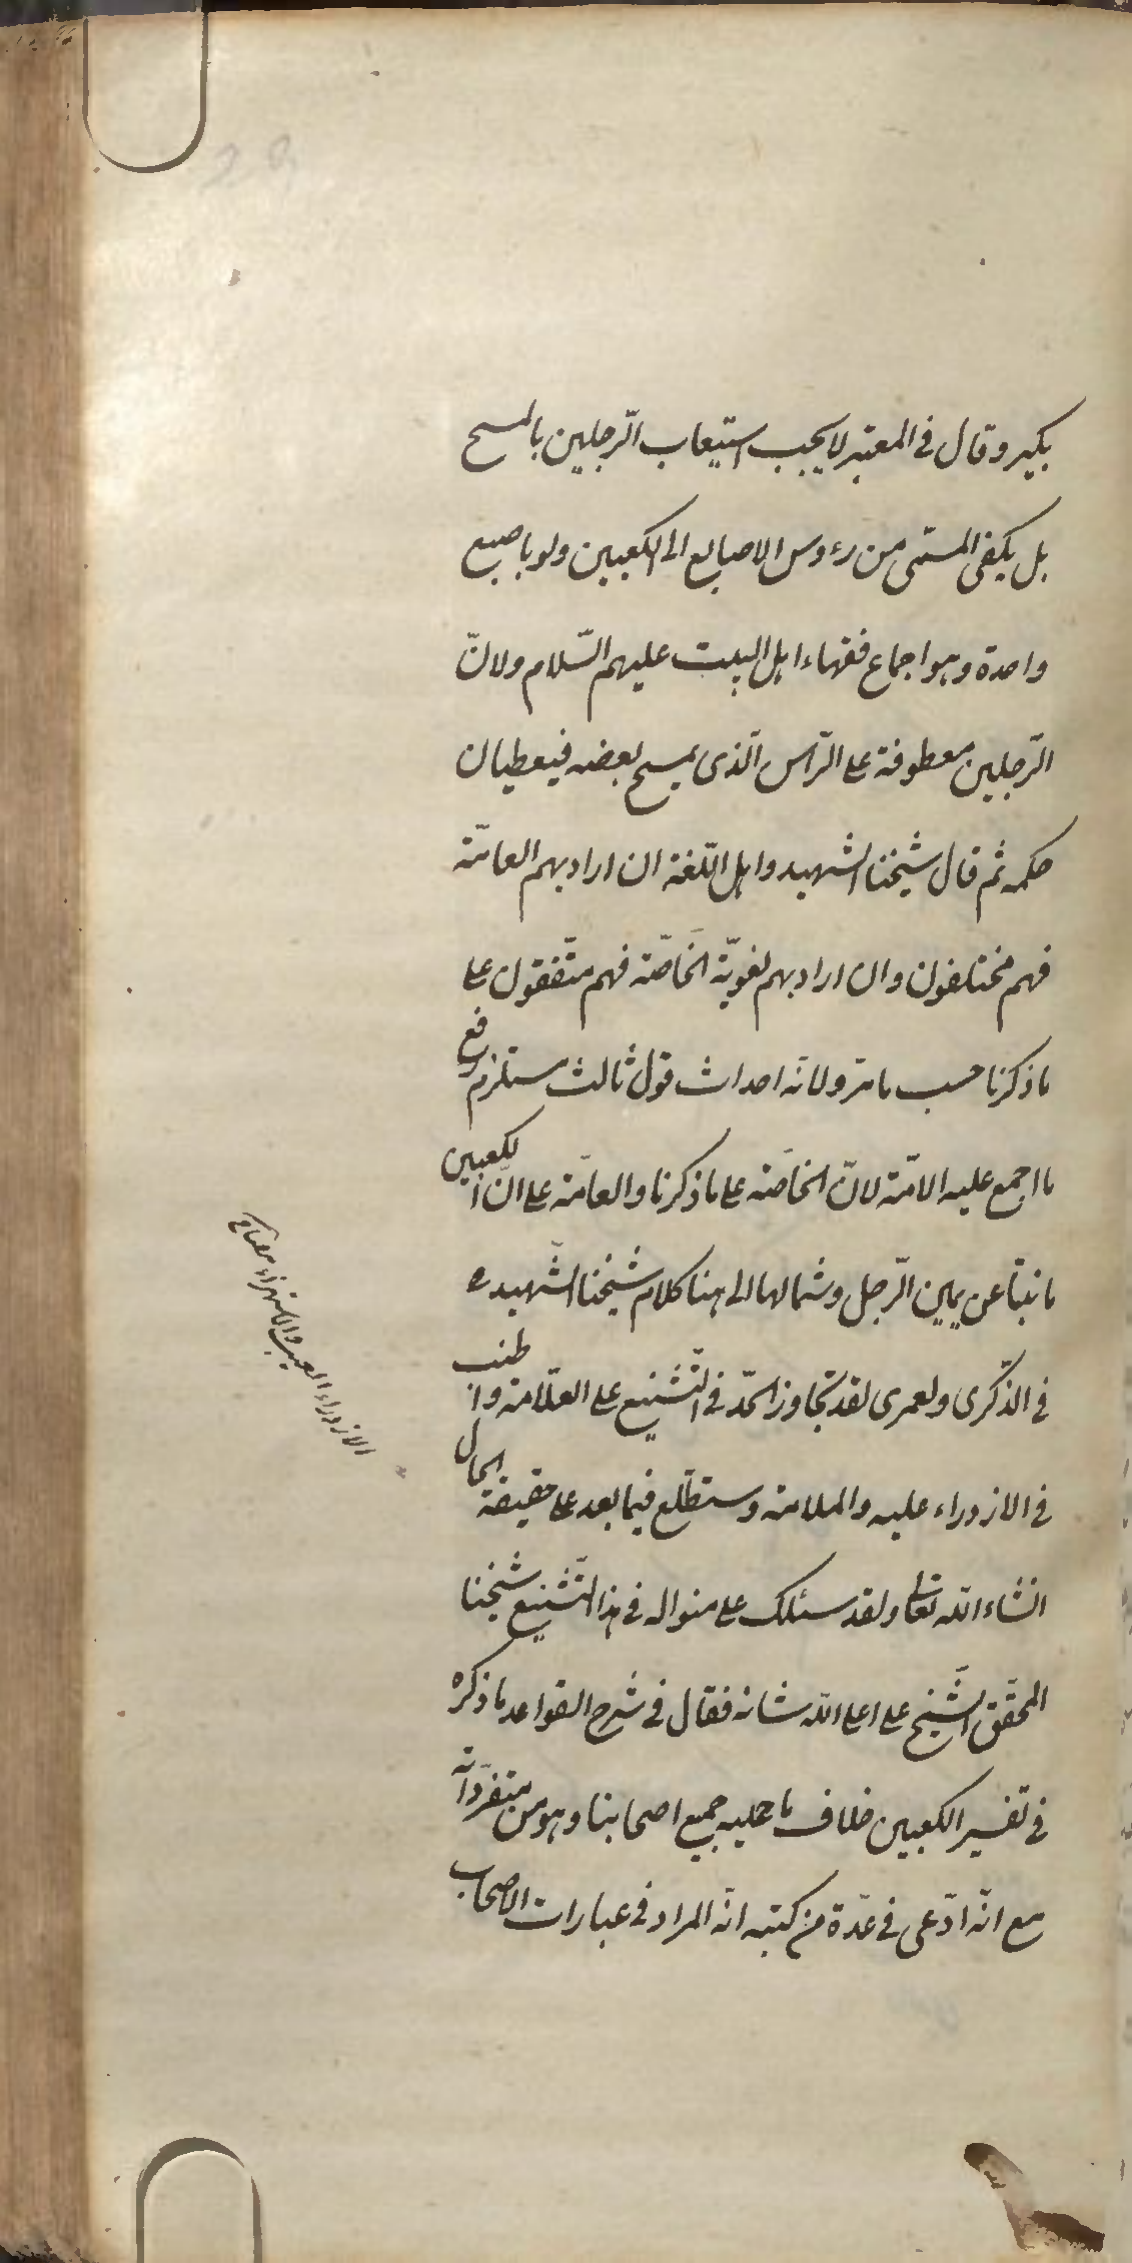 بكير وقال في المعتبر لا يجب استيعاب الرّجلين بالمسح
بل يكفي المسمّى من رءوس الاصابع الى الكعبين ولو باصبع
واحدة وهو اجماع فقهاء اهل البيت عليهم السّلام ولانّ
الرّجلين معطوفة على الرّاس الّذى يمسح بعضه فيعطيان
حكمه ثم قال شيخنا الشهيد واهل اللّغة ان اراد بهم العامّة
فهم مختلفون وان اراد بهم لغويّة الخاصّة فهم متّفقون على
ما ذكرنا حسب ما مرّ ولانّه احداث قول ثالث مستلزم رفع
ما اجمع عليه الامّة لانّ الخاصّة على ما ذكرنا والعامّة على انّ الكعبين
ما نبتا عن يمين الرّجل وشمالها الى هنا كلام شيخنا الشّهيد ره
في الذّكرى ولعمرى لقد تجاوز الحدّ في التّشنيع على العلّامة واطنب
في الازدراء عليه والملامة وستطّلع فيما بعد على حقيقة الحال
انشاء الله تعالى ولقد سلك على منواله في هذا التّشنيع شيخنا
المحقّق الشّيخ على اعلى الله شانه فقال في شرح القواعد ما ذكره
في تفسير الكعبين خلاف ما عليه جميع اصحابنا وهو من متفرّداته
مع انّه ادّعى في عدّة من كتبه انّه المراد في عبارات الاصحاب
الازدراء العيب والاستهزاء